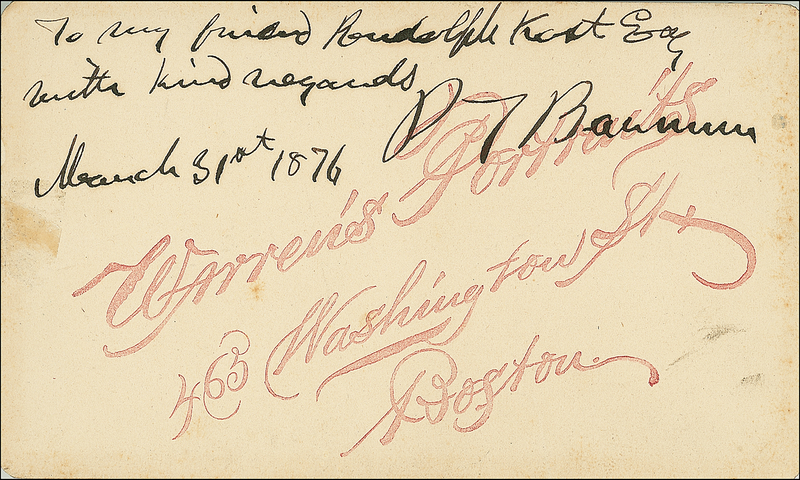 To my friend Rudolph Kost Esq
with kind regards
P T Barnum
March 31st 1876
Warren's Portraits
465 Washington St.
Boston.